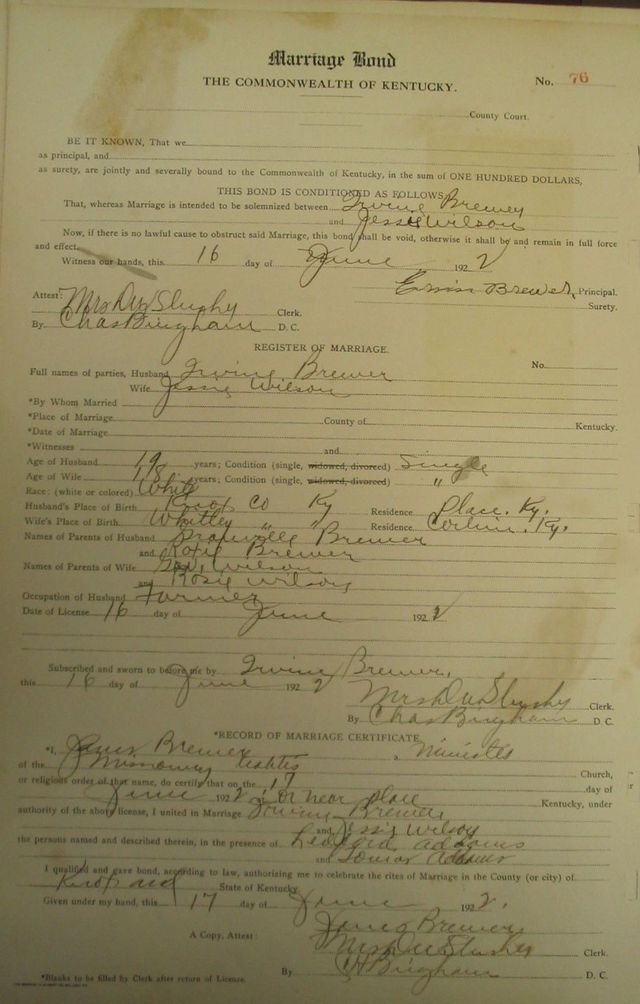 Marriage Bond
THE COMMONWEALTH OF KENTUCKY.
No. 76
County Court.
BE IT KNOWN, That we
as principal, and
as surety, are jointly and severally bound to the Commonwealth of Kentucky, in the sum of ONE HUNDRED DOLLARS,
THIS BOND IS CONDITIONED AS FOLLOWS:
That, whereas Marriage is intended to be solemnized between Irvine Brewer
and Jessie Wilson
Now, if there is no lawful cause to obstruct said Marriage, this bond shall be void, otherwise it shall be and remain in full force
and effect.
Witness our hands, this 16 day of June 1922
Brewer, Principal.
Surety.
Attest: Mrs D W Slusher Clerk.
By Chas Bingham D. C.
REGISTER OF MARRIAGE.
No.
Full names of parties, Husband Irvine Brewer
Wife Jessie Wilson
*By Whom Married
*Place of Marriage County of Kentucky.
*Date of Marriage
*Witnesses and
Age of Husband 19 years; Condition (single, widowed, divorced) Single
Age of Wife 18 years; Condition (single, widowed, divorced) "
Race: (white or colored) White
Husband's Place of Birth Knox Co Ky Residence Place, Ky.
Wife's Place of Birth Whitley " " Residence Corbin, Ky.
Names of Parents of Husband Granville Brewer
and Roxie Brewer
Names of Parents of Wife Wilson
and Rosie Wilson
Occupation of Husband Farmer
Date of License 16 day of June 1922
Subscribed and sworn to before me by Irvine Brewer,
this 16 day of June 1922
Mrs D W Slusher Clerk.
By Chas Bingham D. C.
*RECORD OF MARRIAGE CERTIFICATE.
*I, James Brewer a Minister
of the Missionary Church,
or religious order of that name, do certify that on the 17 day of
June 1922, at or near place Kentucky, under
authority of the above license, I united in Marriage Brewer
and Jessie Wilson
the persons named and described therein, in the presence of Addams
and Addams
I qualified and gave bond, according to law, authorizing me to celebrate the rites of Marriage in the County (or city) of
Knox State of Kentucky.
Given under my hand, this 17 day of June 1922.
James Brewer
A Copy, Attest: Mrs D W Slusher Clerk.
By Bingham D. C.
*Blanks to be filled by Clerk after return of License.